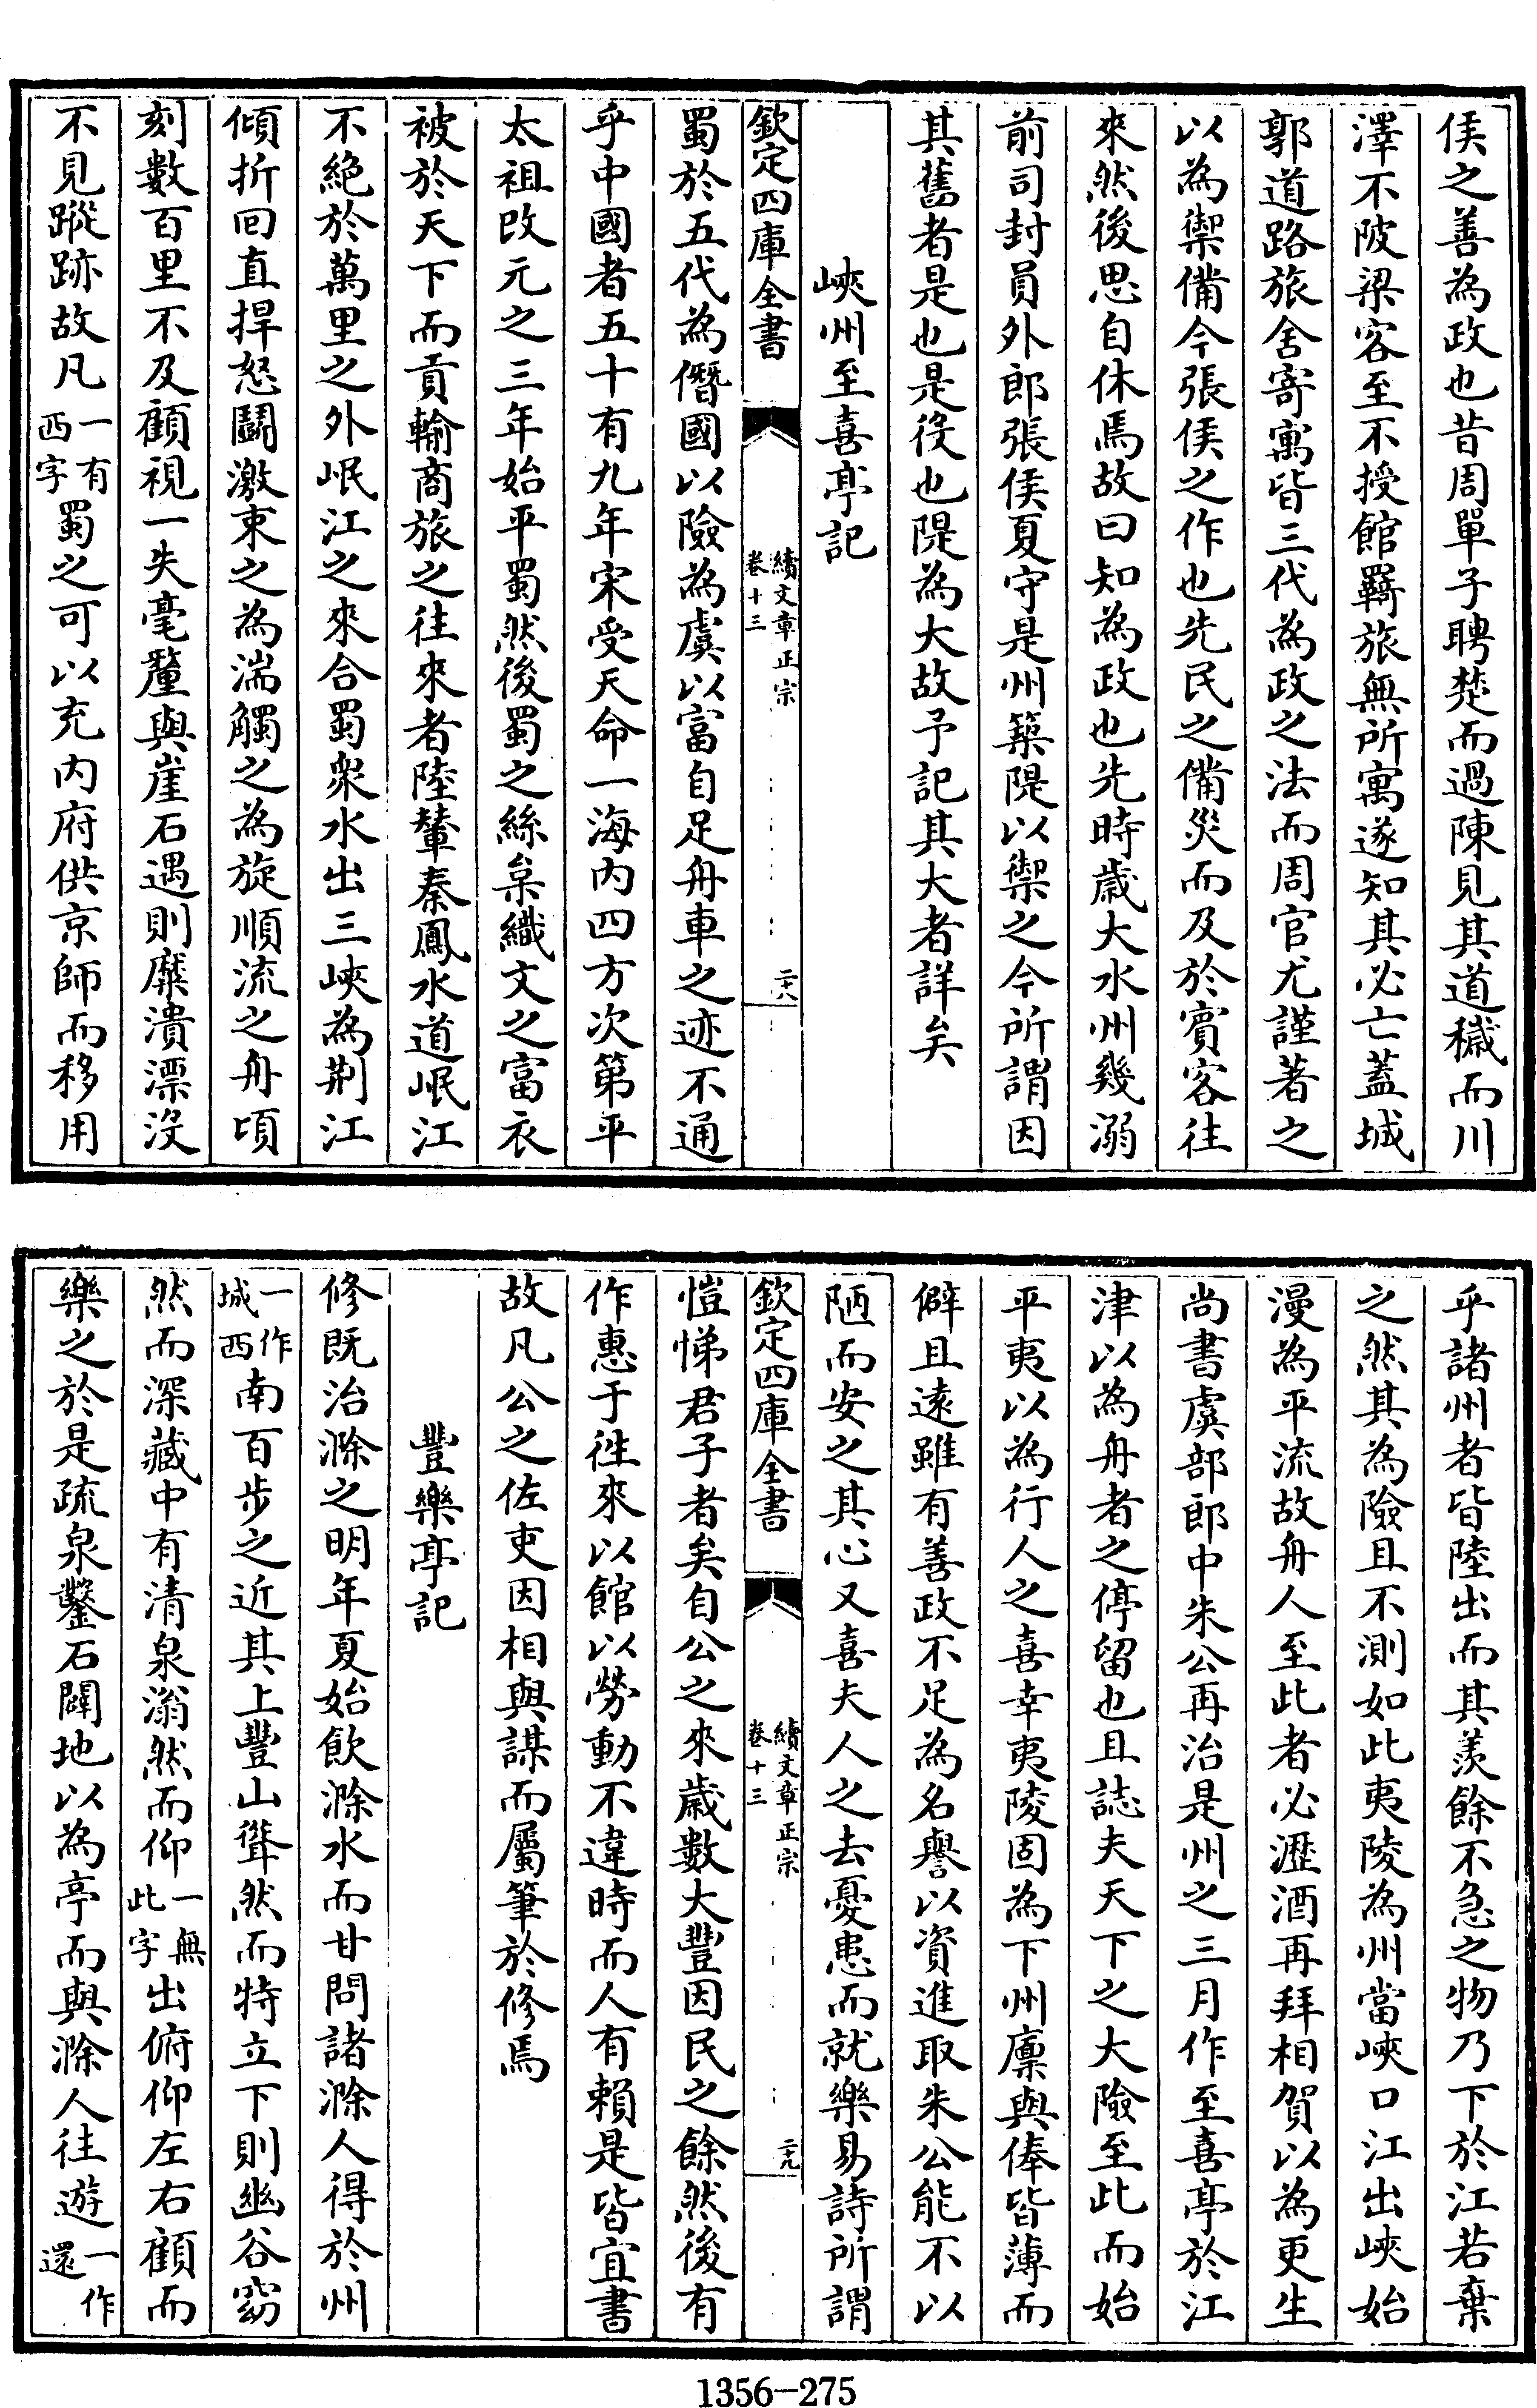 侯之善為政也昔周單子聘楚而過陳見其道穢而川
澤不陂梁客至不授館羈旅無所寓遂知其必亡蓋城
郭道路旅舍寄寓皆三代為政之法而周官尤謹著之
以為禦備今張侯之作也先民之備災而及於賓客往
來然後思自休焉故曰知為政也先時歲大水州幾溺
前司封員外郎張侯夏守是州築隄以禦之今所謂因
其舊者是也是役也隄為大故予記其大者詳矣
峽州至喜亭記
欽定四庫全書 續文章正宗 卷十三 二十八
蜀於五代為僭國以險為虞以富自足舟車之迹不通
乎中國者五十有九年宋受天命一海內四方次第平
太祖改元之三年始平蜀然後蜀之絲枲織文之富衣
被於天下而貢輸商旅之往來者陸輦秦鳳水道岷江
不絕於萬里之外岷江之來合蜀眾水出三峽為荆江
傾折回直捍怒鬭激束之為湍觸之為旋順流之舟頃
刻數百里不及顧視一失毫釐與崖石遇則糜潰漂沒
不見蹤跡故凡一有西字蜀之可以充內府供京師而移用
乎諸州者皆陸出而其羨餘不急之物乃下於江若棄
之然其為險且不測如此夷陵為州當峽口江出峽始
漫為平流故舟人至此者必瀝酒再拜相賀以為更生
尚書虞部郎中朱公再治是州之三月作至喜亭於江
津以為舟者之停留也且誌夫天下之大險至此而始
平夷以為行人之喜幸夷陵固為下州廩與俸皆薄而
僻且遠雖有善政不足為名譽以資進取朱公能不以
陋而安之其心又喜夫人之去憂患而就樂易詩所謂
欽定四庫全書 續文章正宗 卷十三 二十九
愷悌君子者矣自公之來歲數大豐因民之餘然後有
作惠于往來以館以勞動不違時而人有賴是皆宜書
故凡公之佐吏因相與謀而屬筆於修焉
豐樂亭記
修既治滁之明年夏始飲滁水而甘問諸滁人得於州
一作城西南百步之近其上豐山聳然而特立下則幽谷窈
然而深藏中有清泉滃然而仰一無此字出俯仰左右顧而
樂之於是疏泉鑿石闢地以為亭而與滁人往遊一作還
1356-275